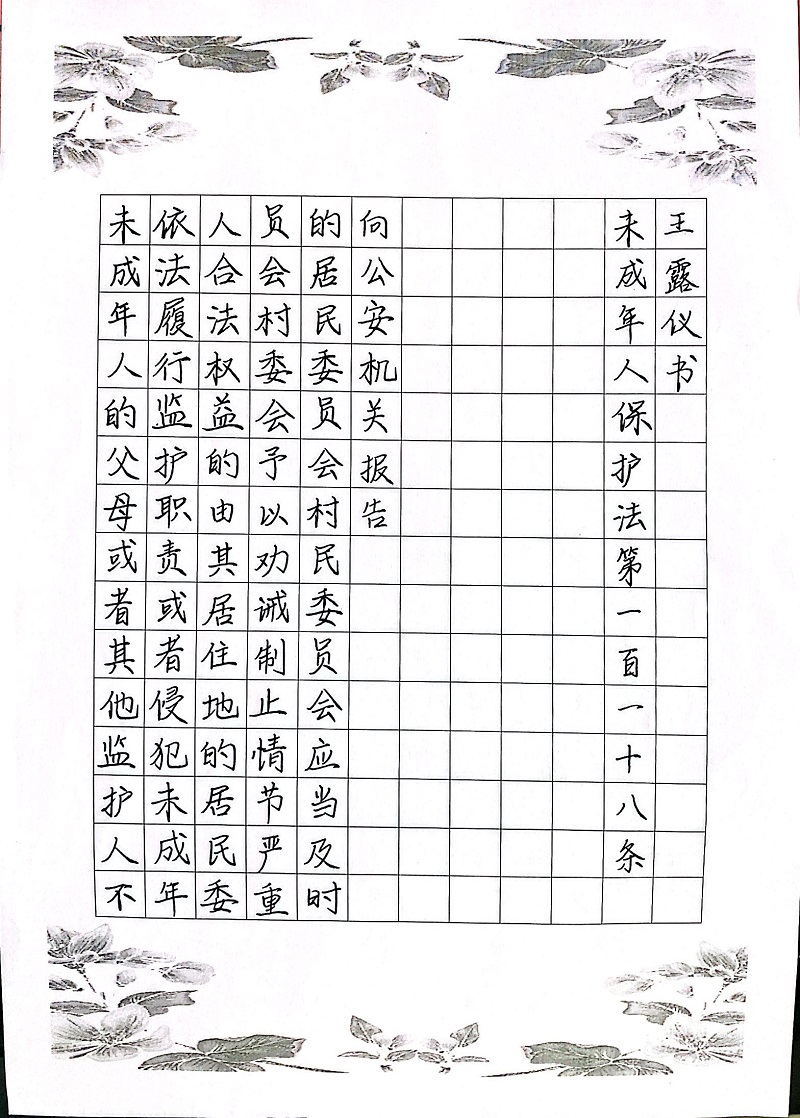 未成年人的父母或者其他监护人不
依法履行监护职责或者侵犯未成年
人合法权益的由其居住地的居民委
员会村委会予以劝诫制止情节严重
的居民委员会村民委员会应当及时
向公安机关报告
未成年人保护法第一百一十八条
王露仪书